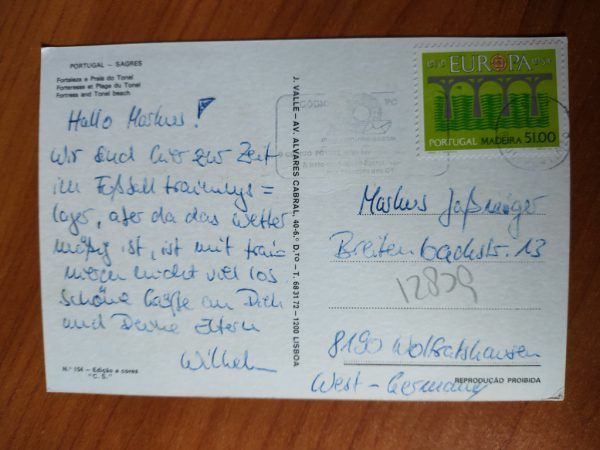 PORTUGAL – SAGRES
Fortaleza e Praia do Tonel
Forteresse et Plage du Tonel
Fortress and Tonel beach
Hallo Markus!
Wir sind hier zur Zeit
im Fußball trainings=
lager, aber da das Wetter
mäßig ist, ist mit train
nicht viel los
schöne Grüße an Dich
und Deine Eltern
Wilhelm
N.º 154 – Edição a cores
"C. S."
J. VALLE – AV. ALVARES CABRAL, 40-6.º D.TO – T. 683172 – 1200 LISBOA
CÓDIGO
EUROPA
PORTUGAL MADEIRA 51.00
Markus
Breitenbachstr. 13
12839
8190 Wolfratshausen
West-Germany
REPRODUÇÃO PROIBIDA